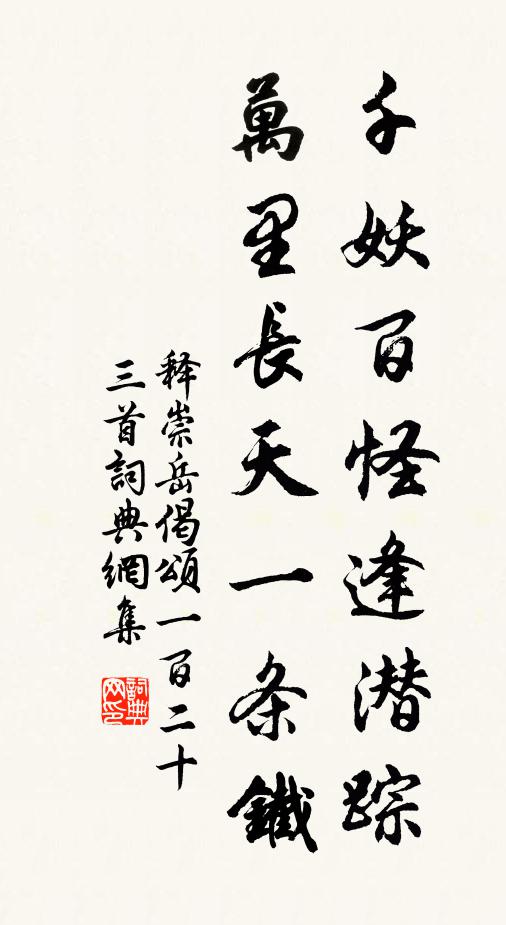 千妖百怪逢潜踪
萬里長天一条鐵
释崇岳偈頌一百二十
三首詞典網集
詞典网印